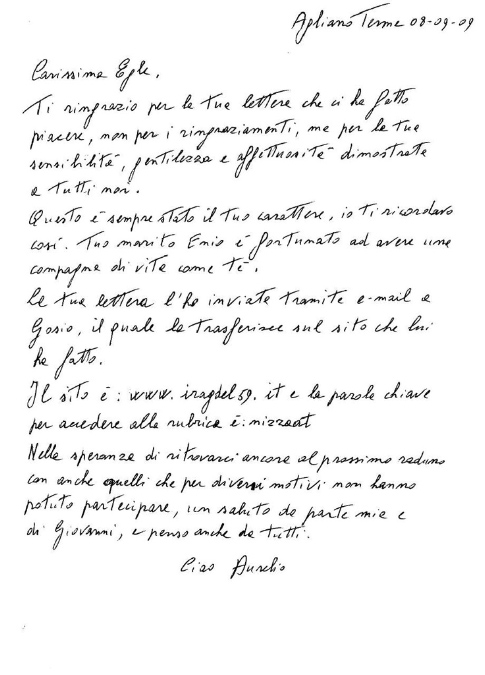 Agliano Terme 08-09-09
Carissima Egle,
Ti ringrazio per la tua lettera che ci ha fatto
piacere, non per i ringraziamenti, ma per la tua
sensibilità, gentilezza e affettuosità dimostrata
a tutti noi.
Questo è sempre stato il tuo carattere, io ti ricordavo
così. Tuo marito Enio è fortunato ad avere una
compagna di vita come tè.
La tua lettera l'ho inviata tramite e-mail a
Gosio, il quale la trasferisce sul sito che lui
ha fatto.
Il sito è: www. iragdel59. it e la parola chiave
per accedere alla rubrica è: mizzaat
Nella speranza di ritrovarci ancora al prossimo raduno
con anche quelli che per diversi motivi non hanno
potuto partecipare, un saluto da parte mia e
di Giovanni, e penso anche da tutti.
Ciao Aurelio